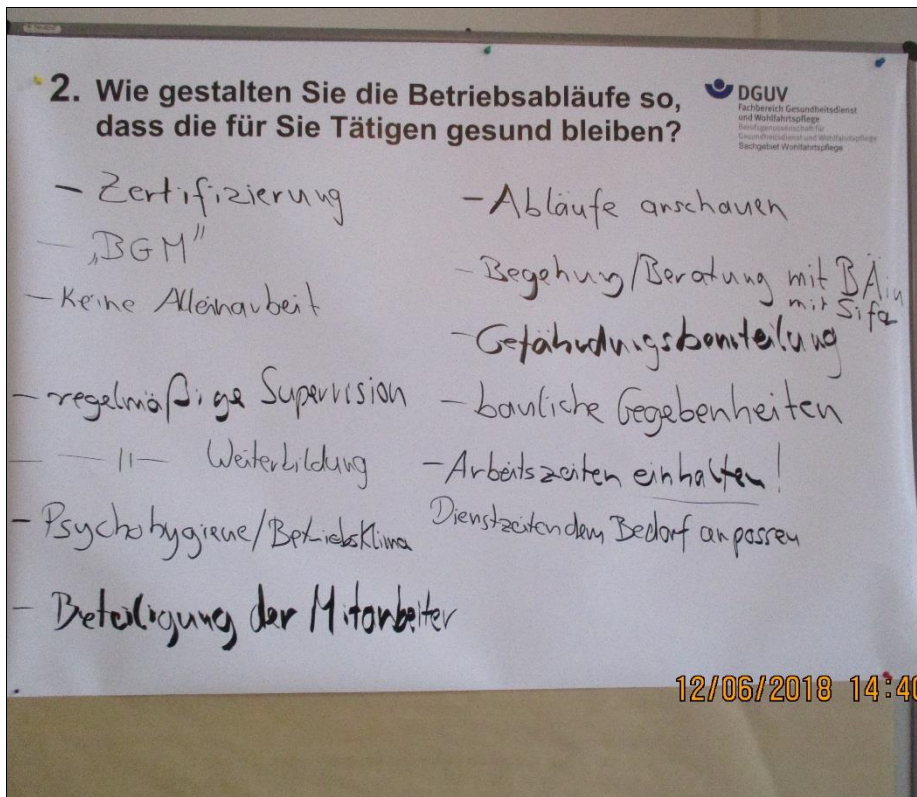 2. Wie gestalten Sie die Betriebsabläufe so,
dass die für Sie Tätigen gesund bleiben?
DGUV
Fachbereich Gesundheitsdienst
und Wohlfahrtspflege
Berufsgenossenschaft für
Gesundheitsdienst und Wohlfahrtspflege
Sachgebiet Wohlfahrtspflege
- Zertifizierung
- „BGM"
- Keine Alleinarbeit
- regelmäßige Supervision
- —11— Weiterbildung
- Psychohygiene/Betriebsklima
- Beteiligung der Mitarbeiter
- Abläufe anschauen
- Begehung/Beratung mit BÄin
mit Sifa
- Gefährdungsbeurteilung
- bauliche Gegebenheiten
- Arbeitszeiten einhalten!
Dienstzeiten dem Bedarf anpassen
12/06/2018 14:40